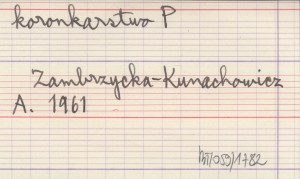 koronkarstwo P
Zambrzycka-Kunachowicz
A. 1961